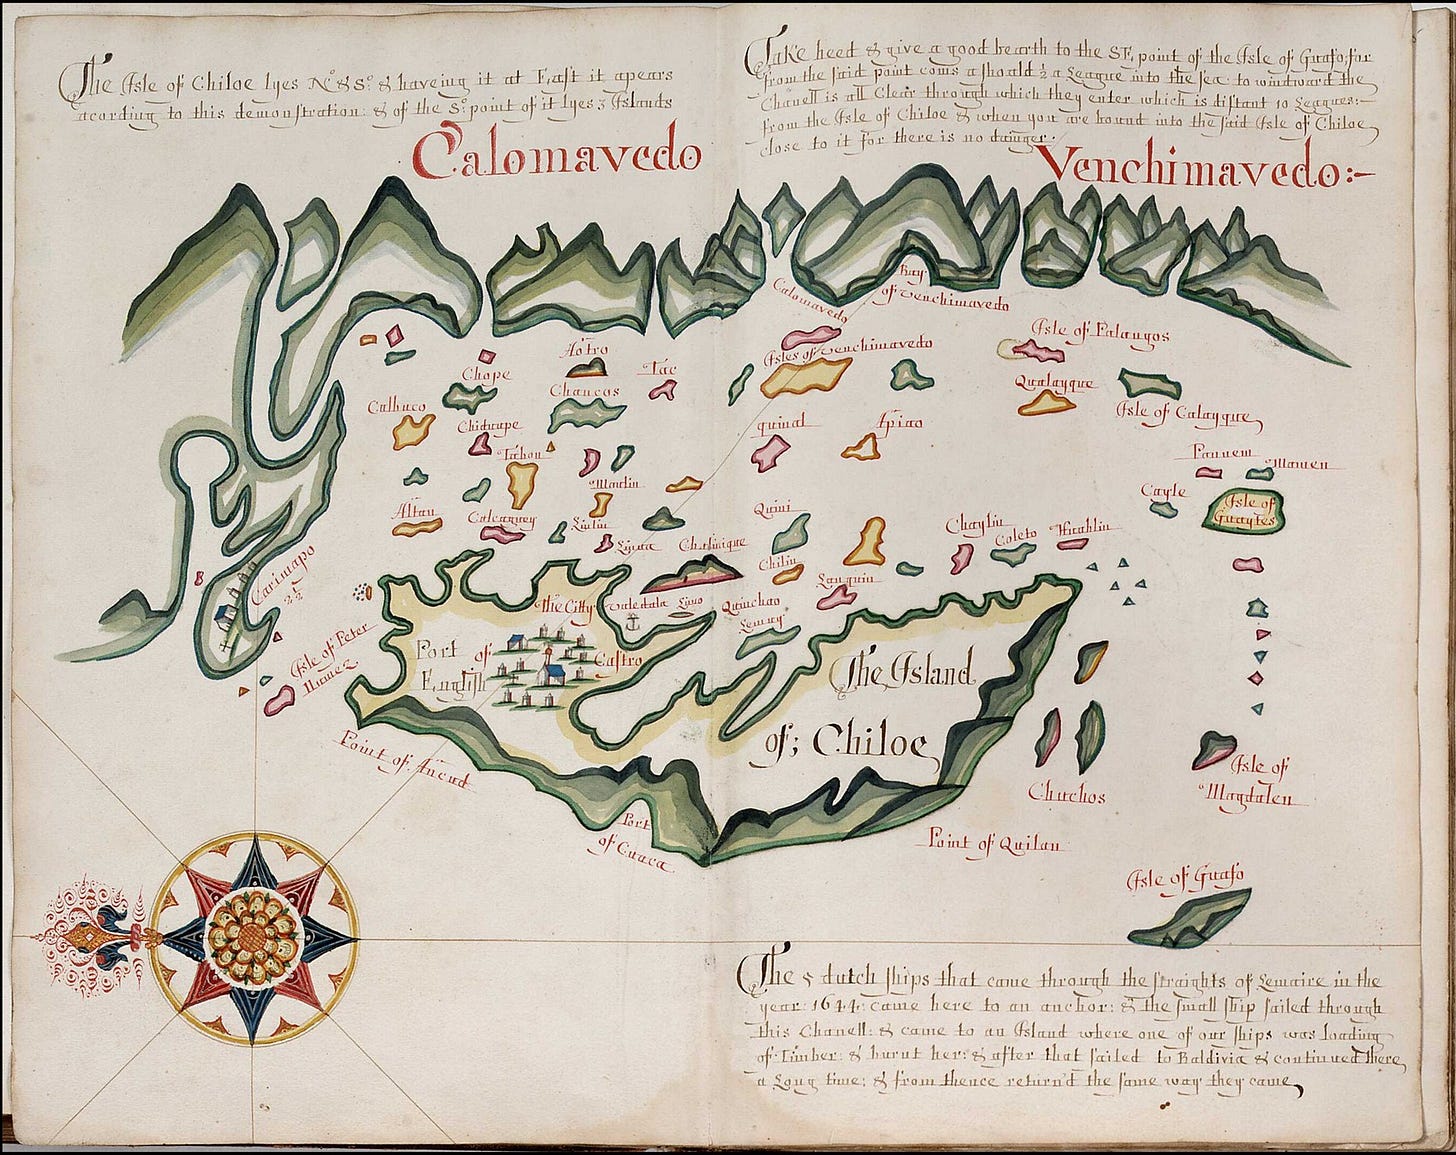 The Isle of Chiloe lyes No & So: & haveing it at East it apears
acording to this demonstration: & of the So: point of it lyes 3 Islands
Take heed & give a good bearth to the SE, point of the Isle of Guafo, for
from the said point coms a shoald ½ a League into the sea: to windward the
Chanell is all Clear through which they enter which is distant 10 Leagues:—
from the Isle of Chiloe & when you are bound into the said Isle of Chiloe
close to it for there is no danger.
Calomavedo
Venchimavedo:—
Bay
of Venchimavedo
Calomavedo
Isle of Palangos
Isles of Venchimavedo
Aotro
Tac
Chope
Chancos
Qualayque
Isle of Calayque
Calbuco
Chiduape
quinal
Apiao
Tabou
Pannem
Mawen
Maulin
Cayle
Isle of
Guaytes
Altau
Calcaguey
Liulin
Quini
Chaylin
Coleto
Linua
Chelinique
Chiliu
Languiu
Carimapo
2½
The Citty
of
Castro
Valedala
Livo
Quinchao
Lemuy
Port
English
The Island
of; Chiloe
Isle of Peter
Nunez
Point of Ancud
Chuchos
Isle of
Magdalen
Port
of Cuaca
Point of Quilan
Isle of Guafo
The 5 dutch ships that came through the straights of Lemaire in the
year: 1644: came here to an anchor: & the small ship sailed through
this Chanell: & came to an Island where one of our ships was loading
of Timber: & burnt her: & after that sailed to Baldivia & continued there
a Long time; & from thence return'd the same way they came,